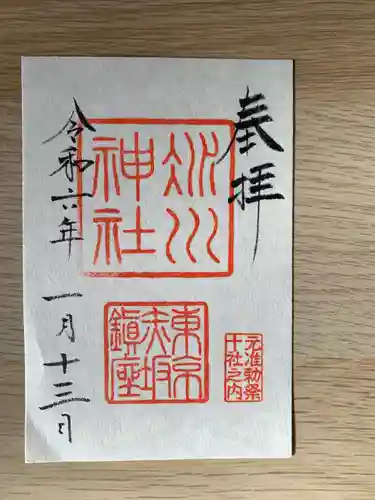 奉拝
氷川
神社
東京
赤坂
鎮座
元准勅祭
十社之内
令和六年
一月十三日